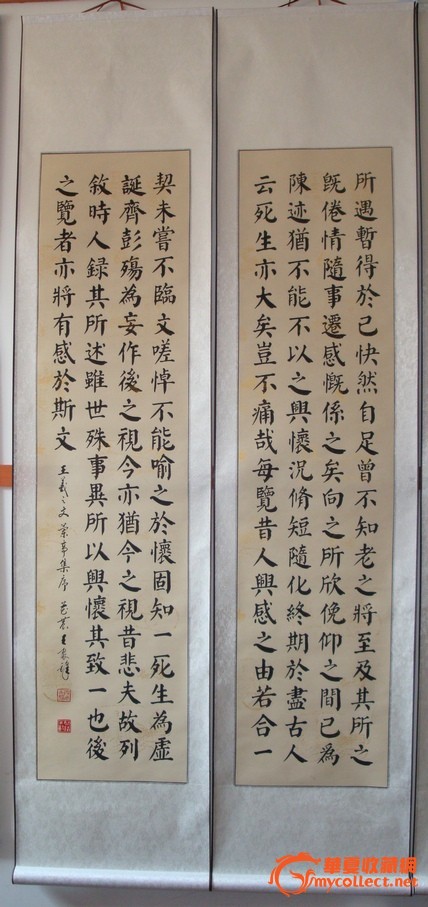 所遇暫得於己快然自足曾不知老之將至及其所之
既倦情隨事遷感慨係之矣向之所欣俛仰之間已為
陳迹猶不能不以之興懷況脩短隨化終期於盡古人
云死生亦大矣豈不痛哉每覽昔人興感之由若合一
契未嘗不臨文嗟悼不能喻之於懷固知一死生為虛
誕齊彭殤為妄作後之視今亦猶今之視昔悲夫故列
敘時人録其所述雖世殊事異所以興懷其致一也後
之覽者亦將有感於斯文
王羲之文蘭亭集序
華夏收藏網
mycollect.net